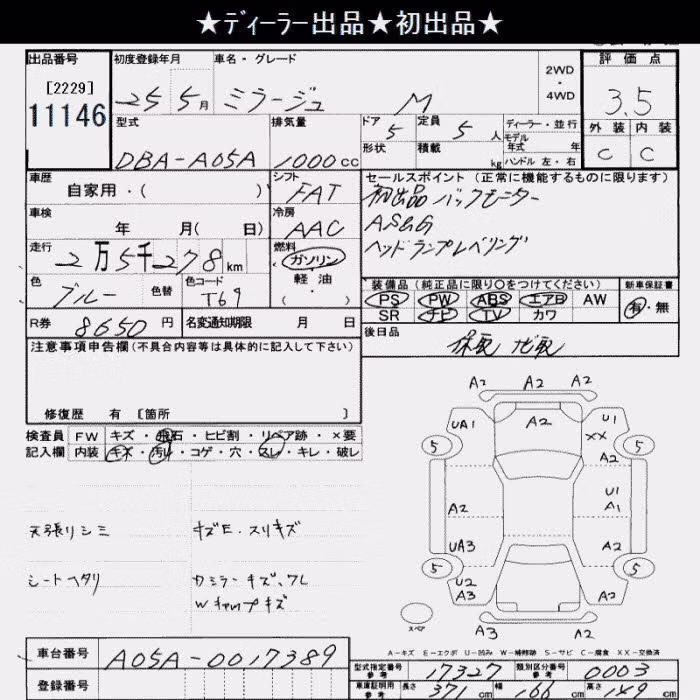 ★ディーラー出品★初出品★
出品番号
[2229]
11146
初度登録年月
25 5月
車名・グレード
ミラージュ M
2WD
・
4WD
評価点
3.5
外装 内装
C C
型式
DBA-A05A
排気量
1000cc
ドア
5
定員
5人
形状
積載
kg
ディーラー・並行
モデル
年式 年
ハンドル 左・右
車歴
自家用・( )
シフト
FAT
車検
年 月( 日)
冷房
AAC
走行
2万5千278km
燃料
ガソリン
・
軽油
・
( )
色
ブルー
色替
色コード
T69
R券
8650円
名変通知期限 月 日
セールスポイント(正常に機能するものに限ります)
初出品 バックモニター
AS&G
ヘッドランプレベリング
装備品(純正品に限り○をつけてください)
PS PW ABS エアB AW
SR ナビ TV カワ
新車保証書
有・無
後日品
保取 ナビ取
注意事項申告欄(不具合内容等は具体的に記入して下さい)
修復歴 有 [箇所 ]
検査員
記入欄
FW キズ・飛石・ヒビ割・リペア跡・×要
内装 キズ・汚れ・コゲ・穴・スレ・キレ・破レ
天張リシミ
キズE.スリキズ
シートヘタリ
Wキャップキズ
A2 A2 A2
UA1 A2 U1
XX
5 5
A2
U1
A2 A1
UA3 A2
5 5
U2
A3 A2
スペア
A3 A2
A-キズ E-エクボ U-凹み W-補修跡 S-サビ C-腐食 XX-交換済
車台番号
A05A-0017389
登録番号
型式指定番号
参考
17327
類別区分番号
参考
0003
車庫証明用
参考
長さ
371cm
幅
166cm
高さ
149cm